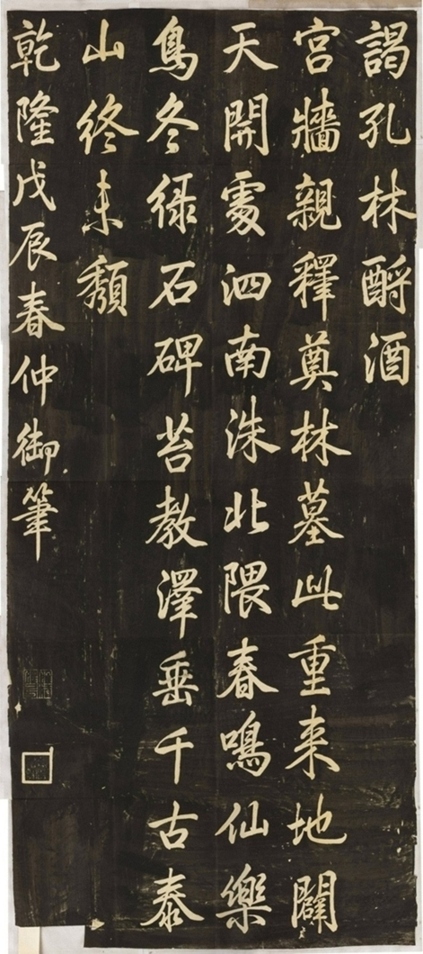 謁孔林酹酒
宮牆親釋奠林墓此重来地闢
天開處泗南洙北隈春鳴仙樂
鳥冬綠石碑苔教澤垂千古泰
山終未頹
乾隆戊辰春仲御筆